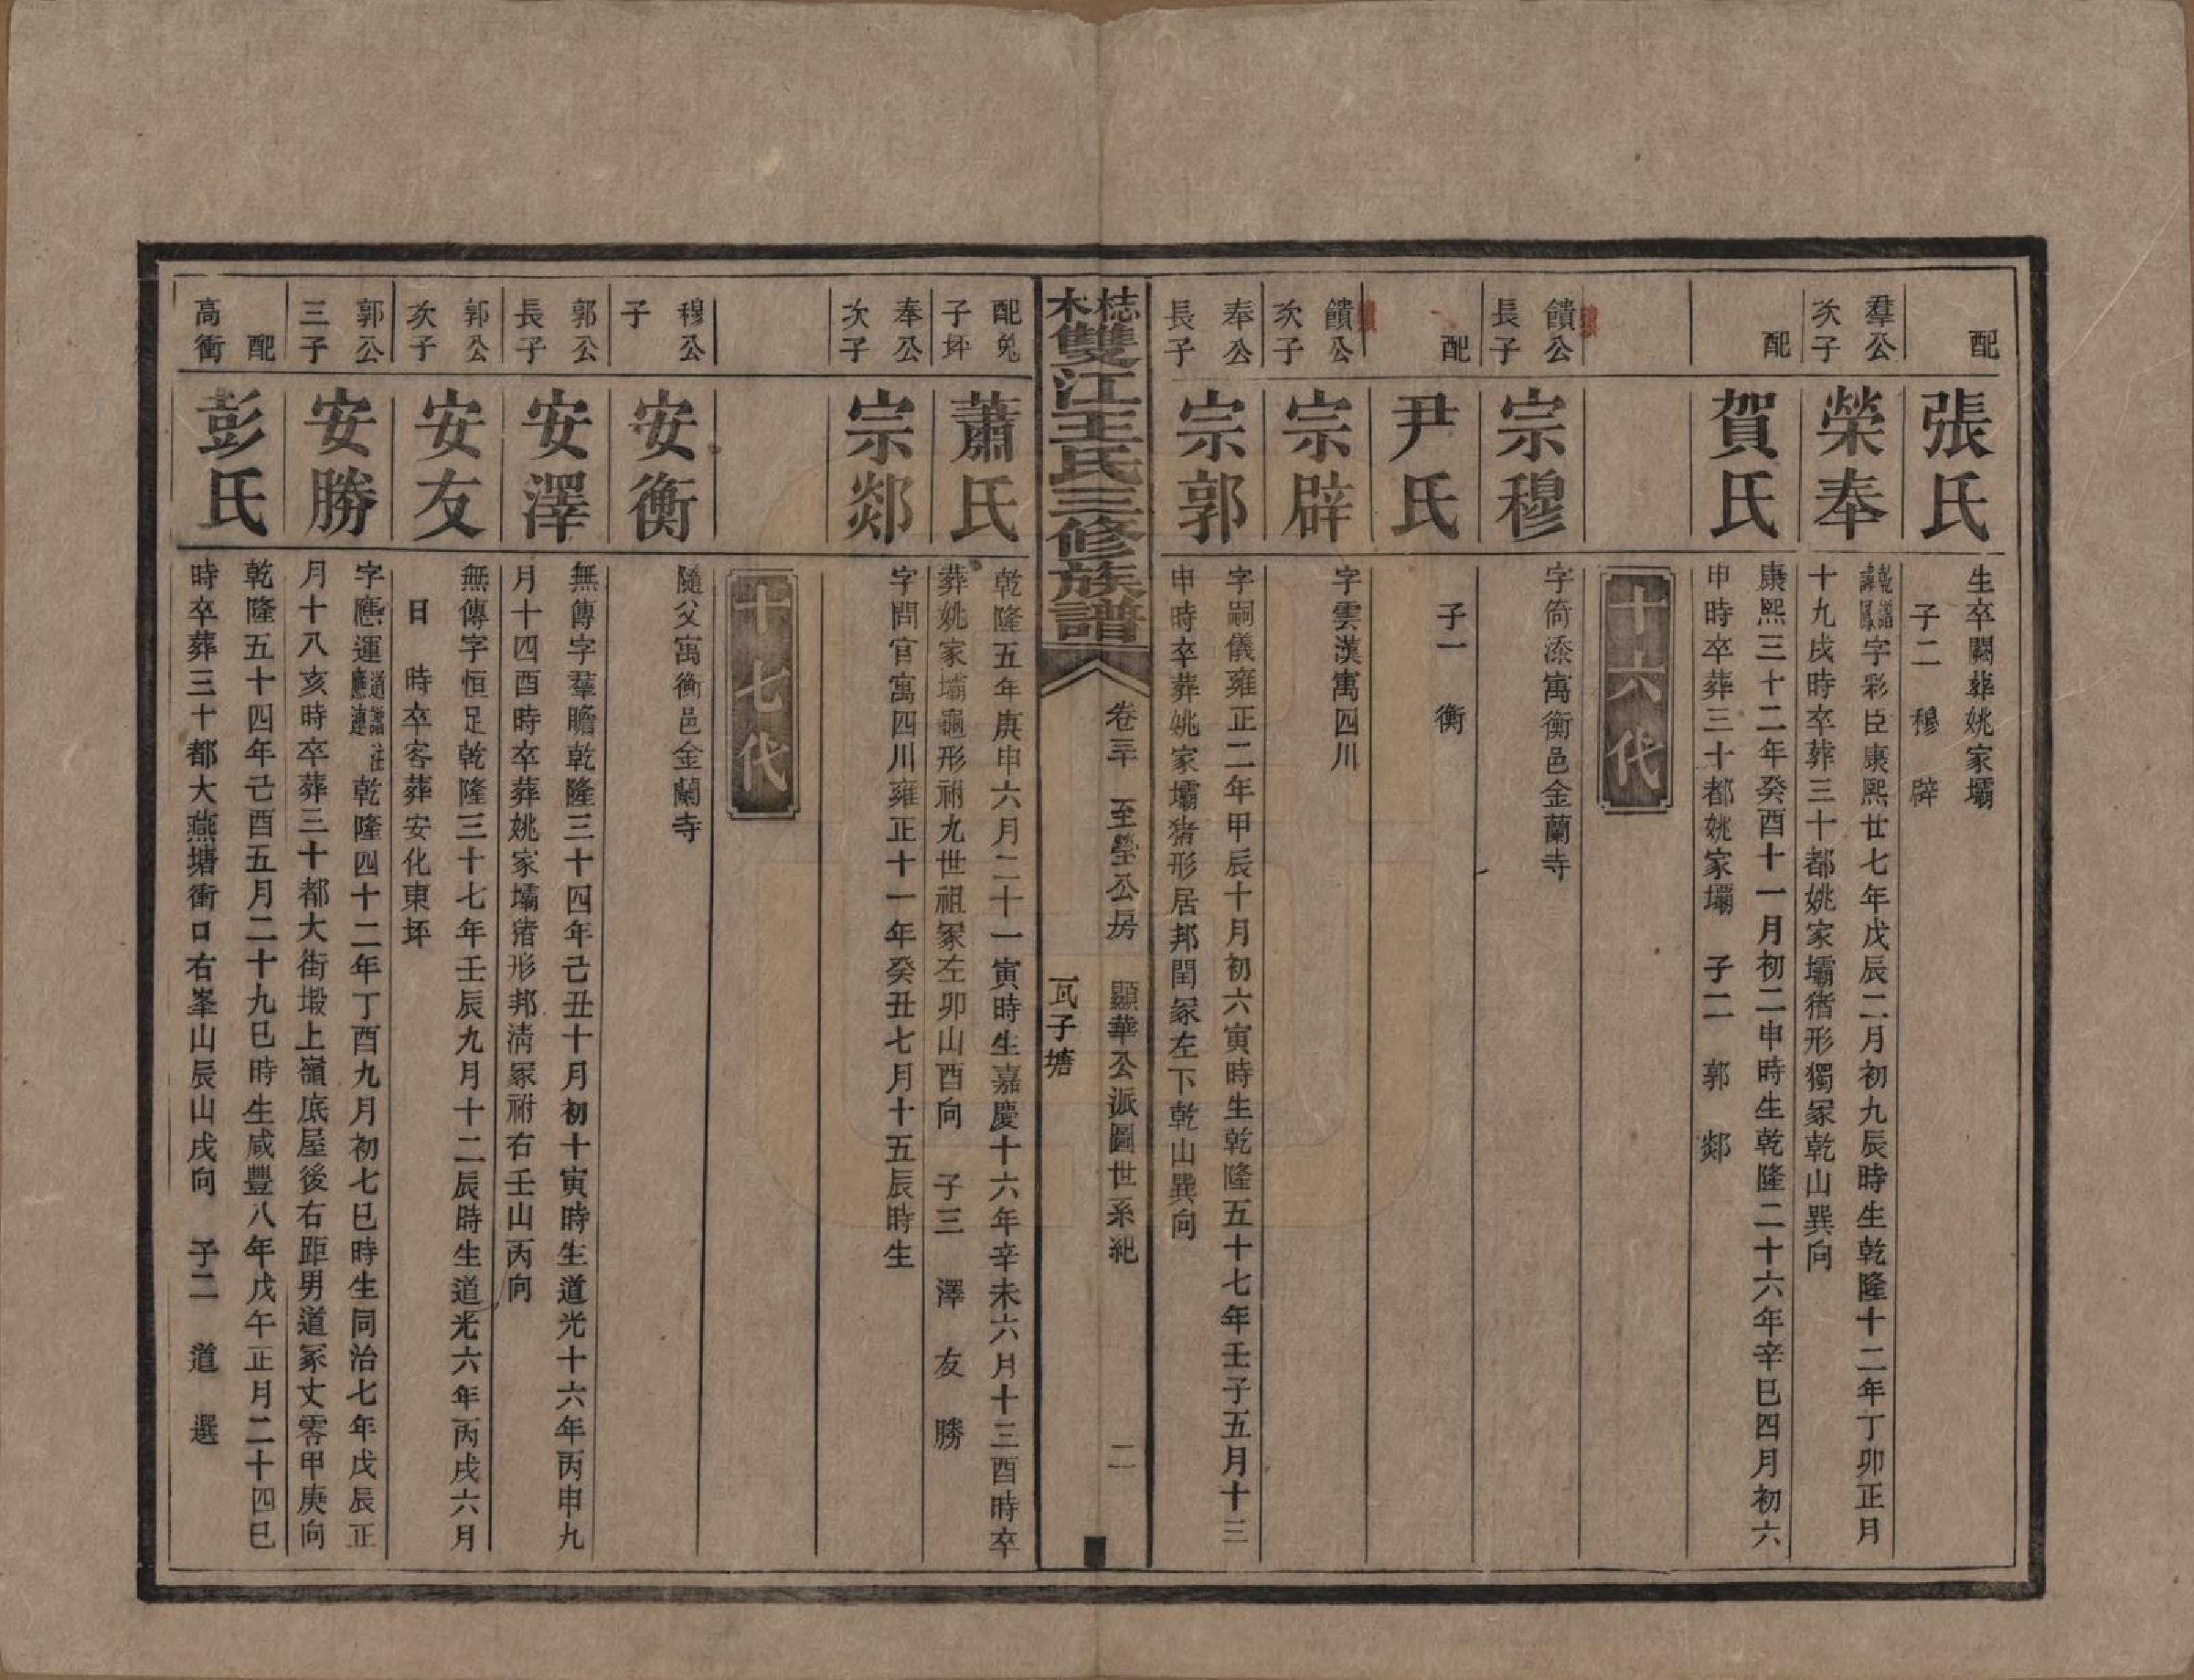 配
張氏
生卒闕葬姚家壩
子二　穆　辟
羣公
次子
榮奉
乾譜
諱鳳
字彩臣康熙廿七年戊辰二月初九辰時生乾隆十二年丁卯正月
十九戌時卒葬三十都姚家壩猪形獨冢乾山巽向
配
賀氏
康熙三十二年癸酉十一月初二申時生乾隆二十六年辛巳四月初六
申時卒葬三十都姚家壩　子二　郭　郯
十六代
饋公
長子
宗穆
字筒漆寓衡邑金蘭寺
配
尹氏
子一　衡
饋公
次子
宗辟
字雲漢寓四川
奉公
長子
宗郭
字嗣儀雍正二年甲辰十月初六寅時生乾隆五十七年壬子五月十三
申時卒葬姚家壩猪形居邦閏冢左下乾山巽向
梽木
雙江王氏三修族譜
卷三十　至瑩公房　顯華公派圖世系紀　二
瓦子塘
配兇
子坪
蕭氏
乾隆五年庚申六月二十一寅時生嘉慶十六年辛未六月十三酉時卒
葬姚家壩龜形祔九世祖冢左卯山酉向　子三　澤　友　勝
奉公
次子
宗郯
字問官寓四川雍正十一年癸丑七月十五辰時生
十七代
穆公
子
安衡
隨父寓衡邑金蘭寺
郭公
長子
安澤
無傳字羣瞻乾隆三十四年己丑十月初十寅時生道光十六年丙申九
月十四酉時卒葬姚家壩猪形邦清冢祔右壬山丙向
郭公
次子
安友
無傳字恒足乾隆三十七年壬辰九月十二辰時生道光六年丙戌六月
日　時卒客葬安化東坪
郭公
三子
安勝
字應運
道譜注
應連
乾隆四十二年丁酉九月初七巳時生同治七年戊辰正
月十八亥時卒葬三十都大街塅上嶺底屋後右距男道冢丈零甲庚向
配
高衝
彭氏
乾隆五十四年己酉五月二十九巳時生咸豐八年戊午正月二十四巳
時卒葬三十都大燕塘衝口右峯山辰山戌向　子二　道　選